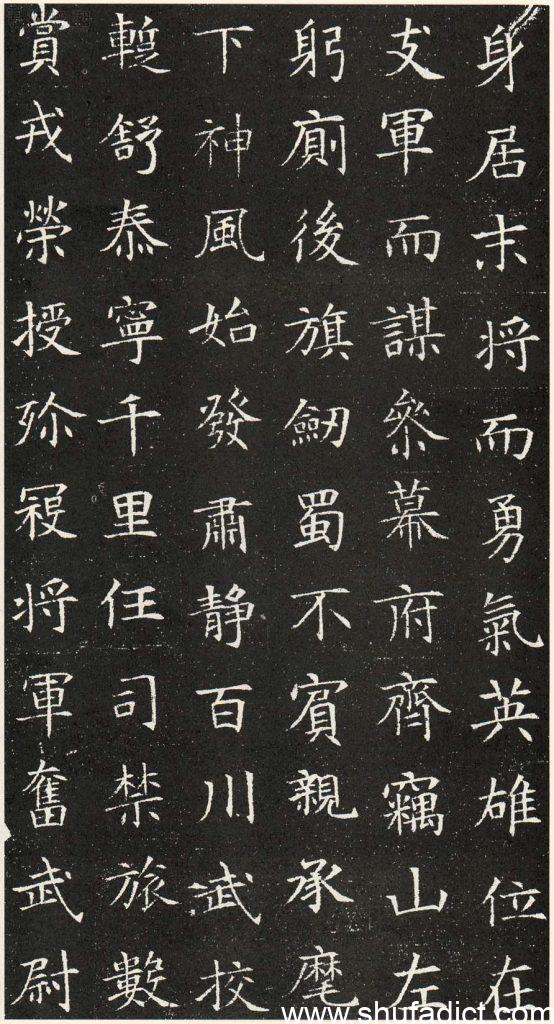 身居末将而勇氣英雄位在
支軍而謀參幕府齊竊山左
躬廁後旗劒蜀不賓親承麾
下神風始發肅静百川武挍
蹔舒泰寧千里任司禁旅數
賞戎榮授殄寇将軍奮武尉
www.shufadict.com